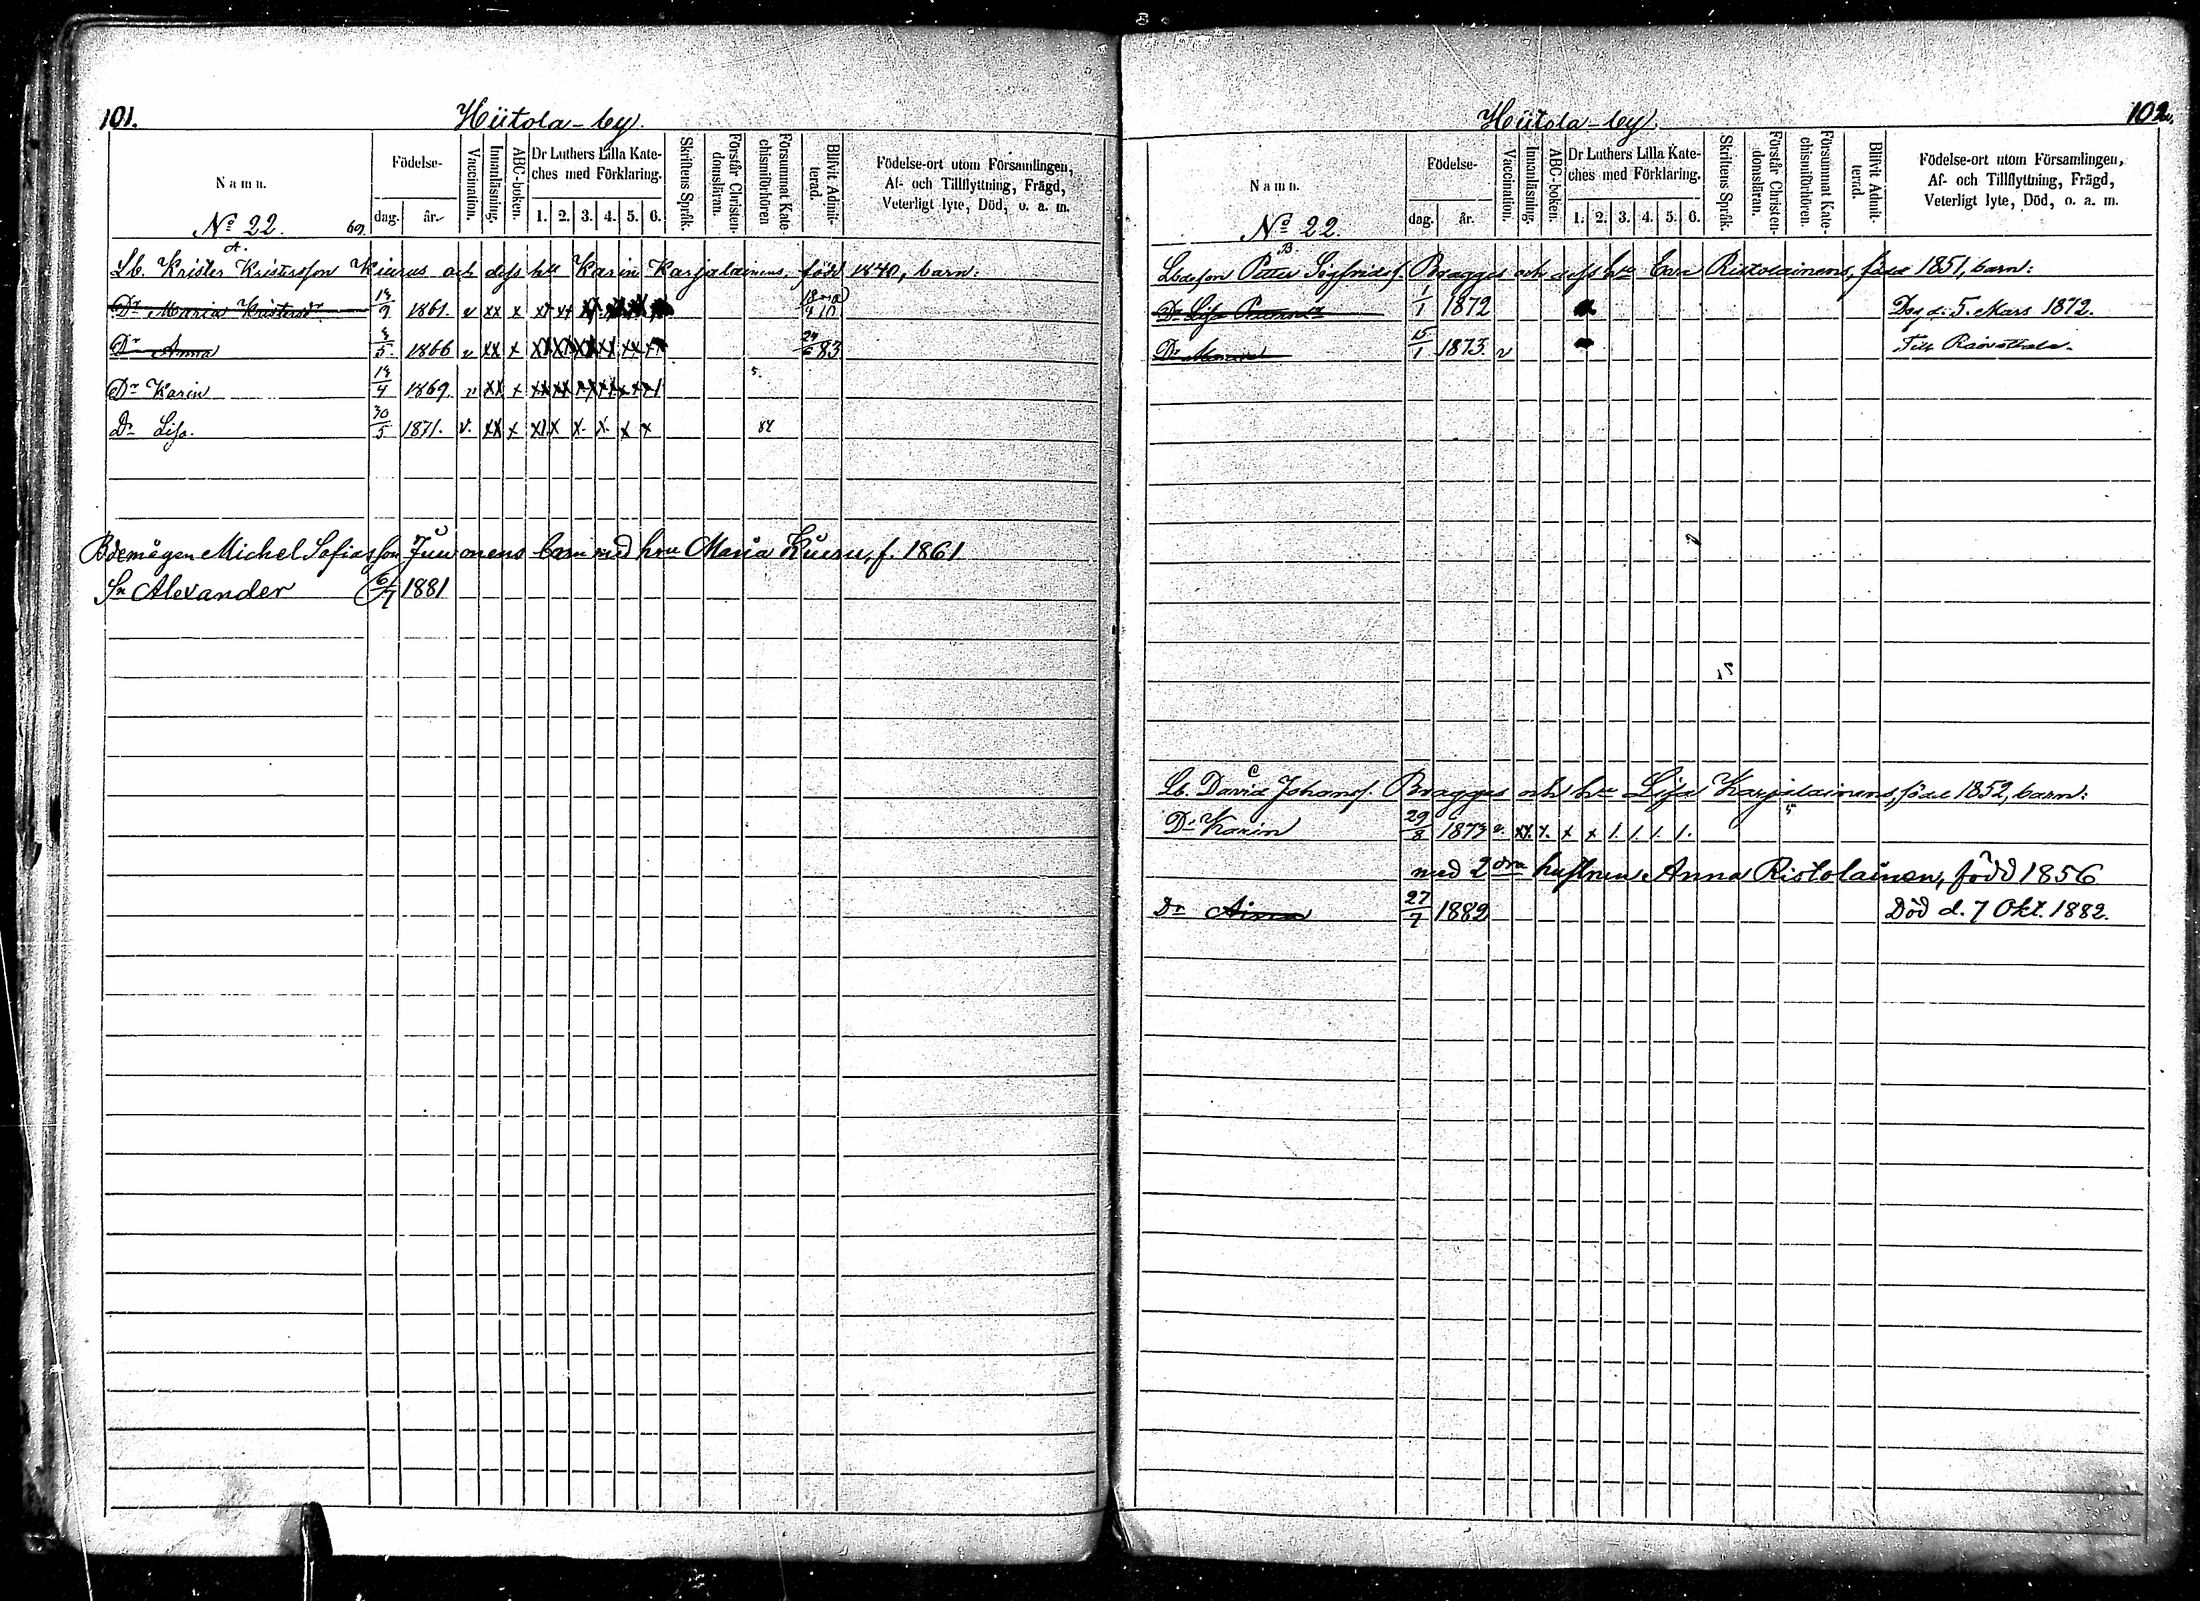 101.
Hiitola-by.
Namn.
Födelse-
dag.
år.
Vaccination.
Innanläsning.
ABC-boken.
Dr Luthers Lilla Kate-
ches med Förklaring.
1. 2. 3. 4. 5. 6.
Skriftens Språk.
Förstår Christen-
domsläran.
Försummat Kate-
chismiförhören
Blifvit Admit-
terad.
Födelse-ort utom Församlingen,
Af- och Tillflyttning, Frägd,
Veterligt lyte, Död, o. a. m.
No 22. 69.
A.
Lb. Krister Kristersson Kiurus och dess hu Karin Karjalainens, född 1840, barn:
Dr Maria Kristersdr 1861. v xx x
Dr Anna 8/5 1866 v xx x 24/6 83
Dr Karin 18/4 1869. v xx x 5.
Dr Lisa. 30/5 1871. v. xx x x x x. x. x x 84
Michel Sofiasson Juuonens barn med hru Maria Kiuru, f. 1861
Sn Alexander 6/7 1881
102.
Hiitola-by.
Namn.
Födelse-
dag.
år.
Vaccination.
Innanläsning.
ABC-boken.
Dr Luthers Lilla Kate-
ches med Förklaring.
1. 2. 3. 4. 5. 6.
Skriftens Språk.
Förstår Christen-
domsläran.
Försummat Kate-
chismiförhören.
Blifvit Admit-
terad.
Födelse-ort utom Församlingen,
Af- och Tillflyttning, Frägd,
Veterligt lyte, Död, o. a. m.
No 22.
B
Lbdesson Petter Sigfridss. Bragges och dess hu Eva Ristolainens, född 1851, barn:
Dr Lisa 1/1 1872 Dog d. 5. Mars 1872.
Dr 15/1 1873. v Till
C
Lb. David Johanss. Bragges och hu Lisa Karjalainens, född 1852, barn:
Dr Karin 29/8 1873 v. xx. x. x x 1. 1. 1. 1. 5
med 2dra hustrun Anna Ristolainen, född 1856
Dr Aina 27/7 1882 Död d. 7 Okt. 1882.